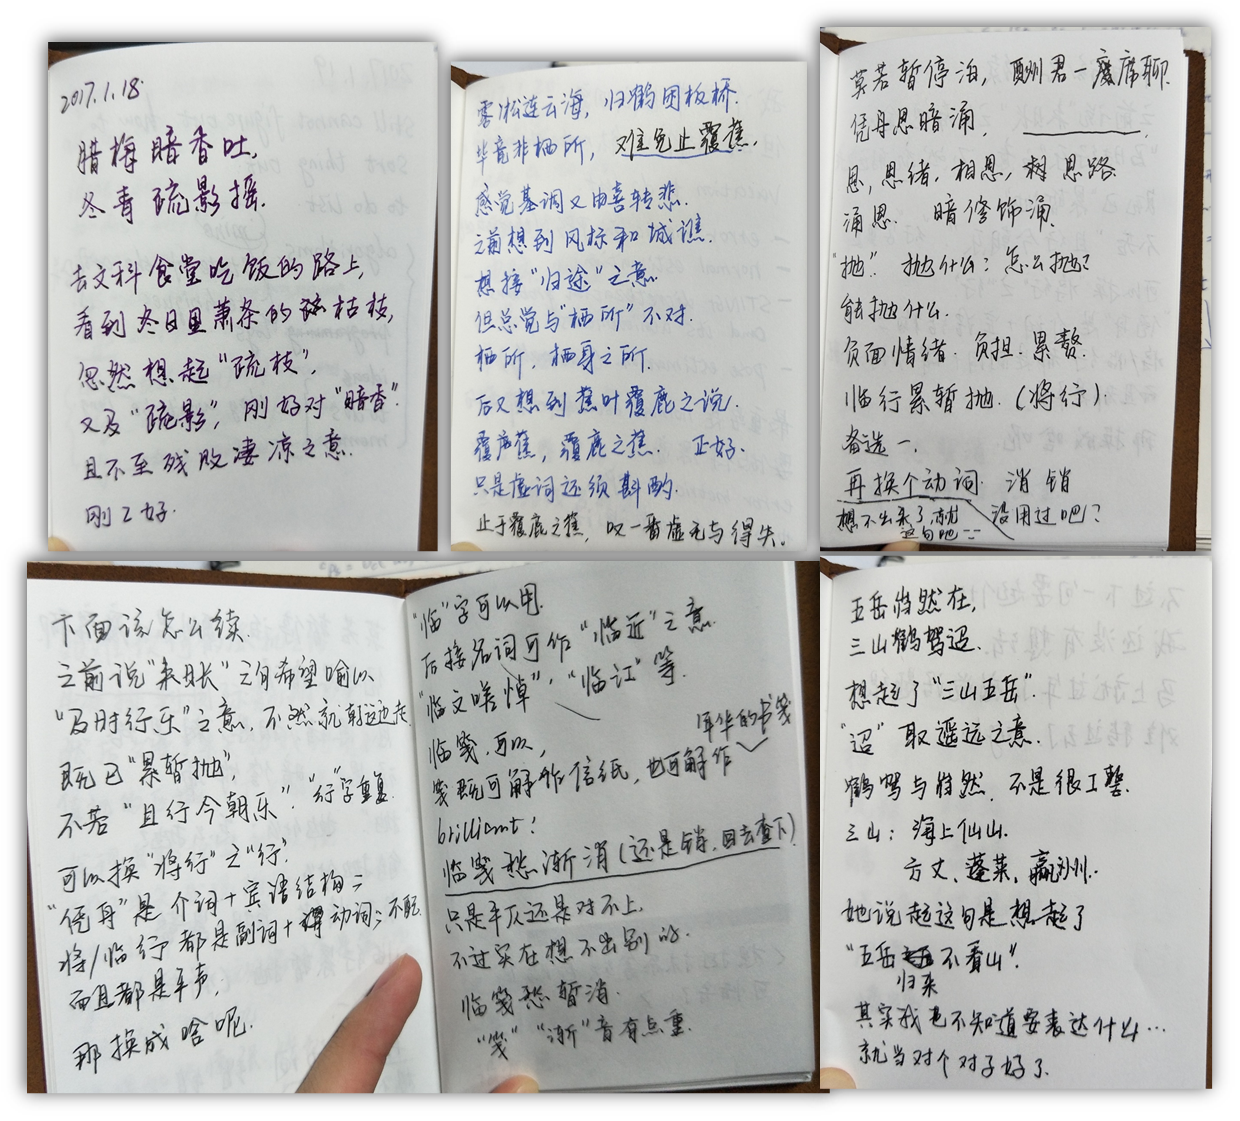 2017.1.18.
腊梅暗香吐,
冬青疏影摇.
去文科食堂吃饭的路上,
看到冬日里萧条的枯枝,
忽然想起“疏枝”,
又及“疏影”, 刚好对“暗香”.
且不至残败凄凉之意.
刚好.
雾凇连云海, 归鹤困板桥.
毕竟非栖所, 难免止覆蕉.
感觉基调又由喜转悲.
之前想到风标和城谯.
想接“归途”之意.
但总觉与“栖所”不对.
栖所, 栖身之所.
后又想到蕉叶覆鹿之说.
覆蕉, 覆鹿之蕉. 正好.
只是虚词还须斟酌.
止于覆鹿之蕉, 叹一番虚无与得失。
莫若暂停泊, 酬君一席聊.
凭舟思暗涌,
思, 思绪, 相思, 思路.
涌思. 暗修饰涌.
“抛”. 抛什么? 怎么抛?
能抛什么.
负面情绪. 负担. 累赘.
临行累暂抛. (将行).
备选一.
再换个动词. 消 销
想不出来了就这句吧
没用过吧?
下面该怎么续.
之前说“来日长”之句希望喻以
“及时行乐”之意. 不然就朝这边走.
既已“累暂抛”,
不若“且行今朝乐”. “行”字重复.
可以换“将行”之“行”.
“凭舟”是介词+宾语结构;
将/临行都是副词+动词; 不配
而且都是平声;
那换成啥呢.
“临”字可以用.
后接名词可作“临近”之意.
“临文嗟悼”, “临江”等.
临笺. 可以,
笺既可解作信纸, 也可解作年华的书笺
brilliant!
临笺愁渐消 (还是销, 回去查下)
只是平仄还是对不上.
不过实在想不出别的.
临笺愁暂消.
“笺”“渐”音有点重.
五岳岿然在,
三山鹤驾迢.
想起了“三山五岳”.
“迢”取遥远之意.
鹤驾与岿然, 不是很工整.
三山: 海上仙山.
方丈、蓬莱、瀛洲.
她说起这句是想起了
“五岳归来不看山”.
其实我也不知道要表达什么…
就当对个对子好了.